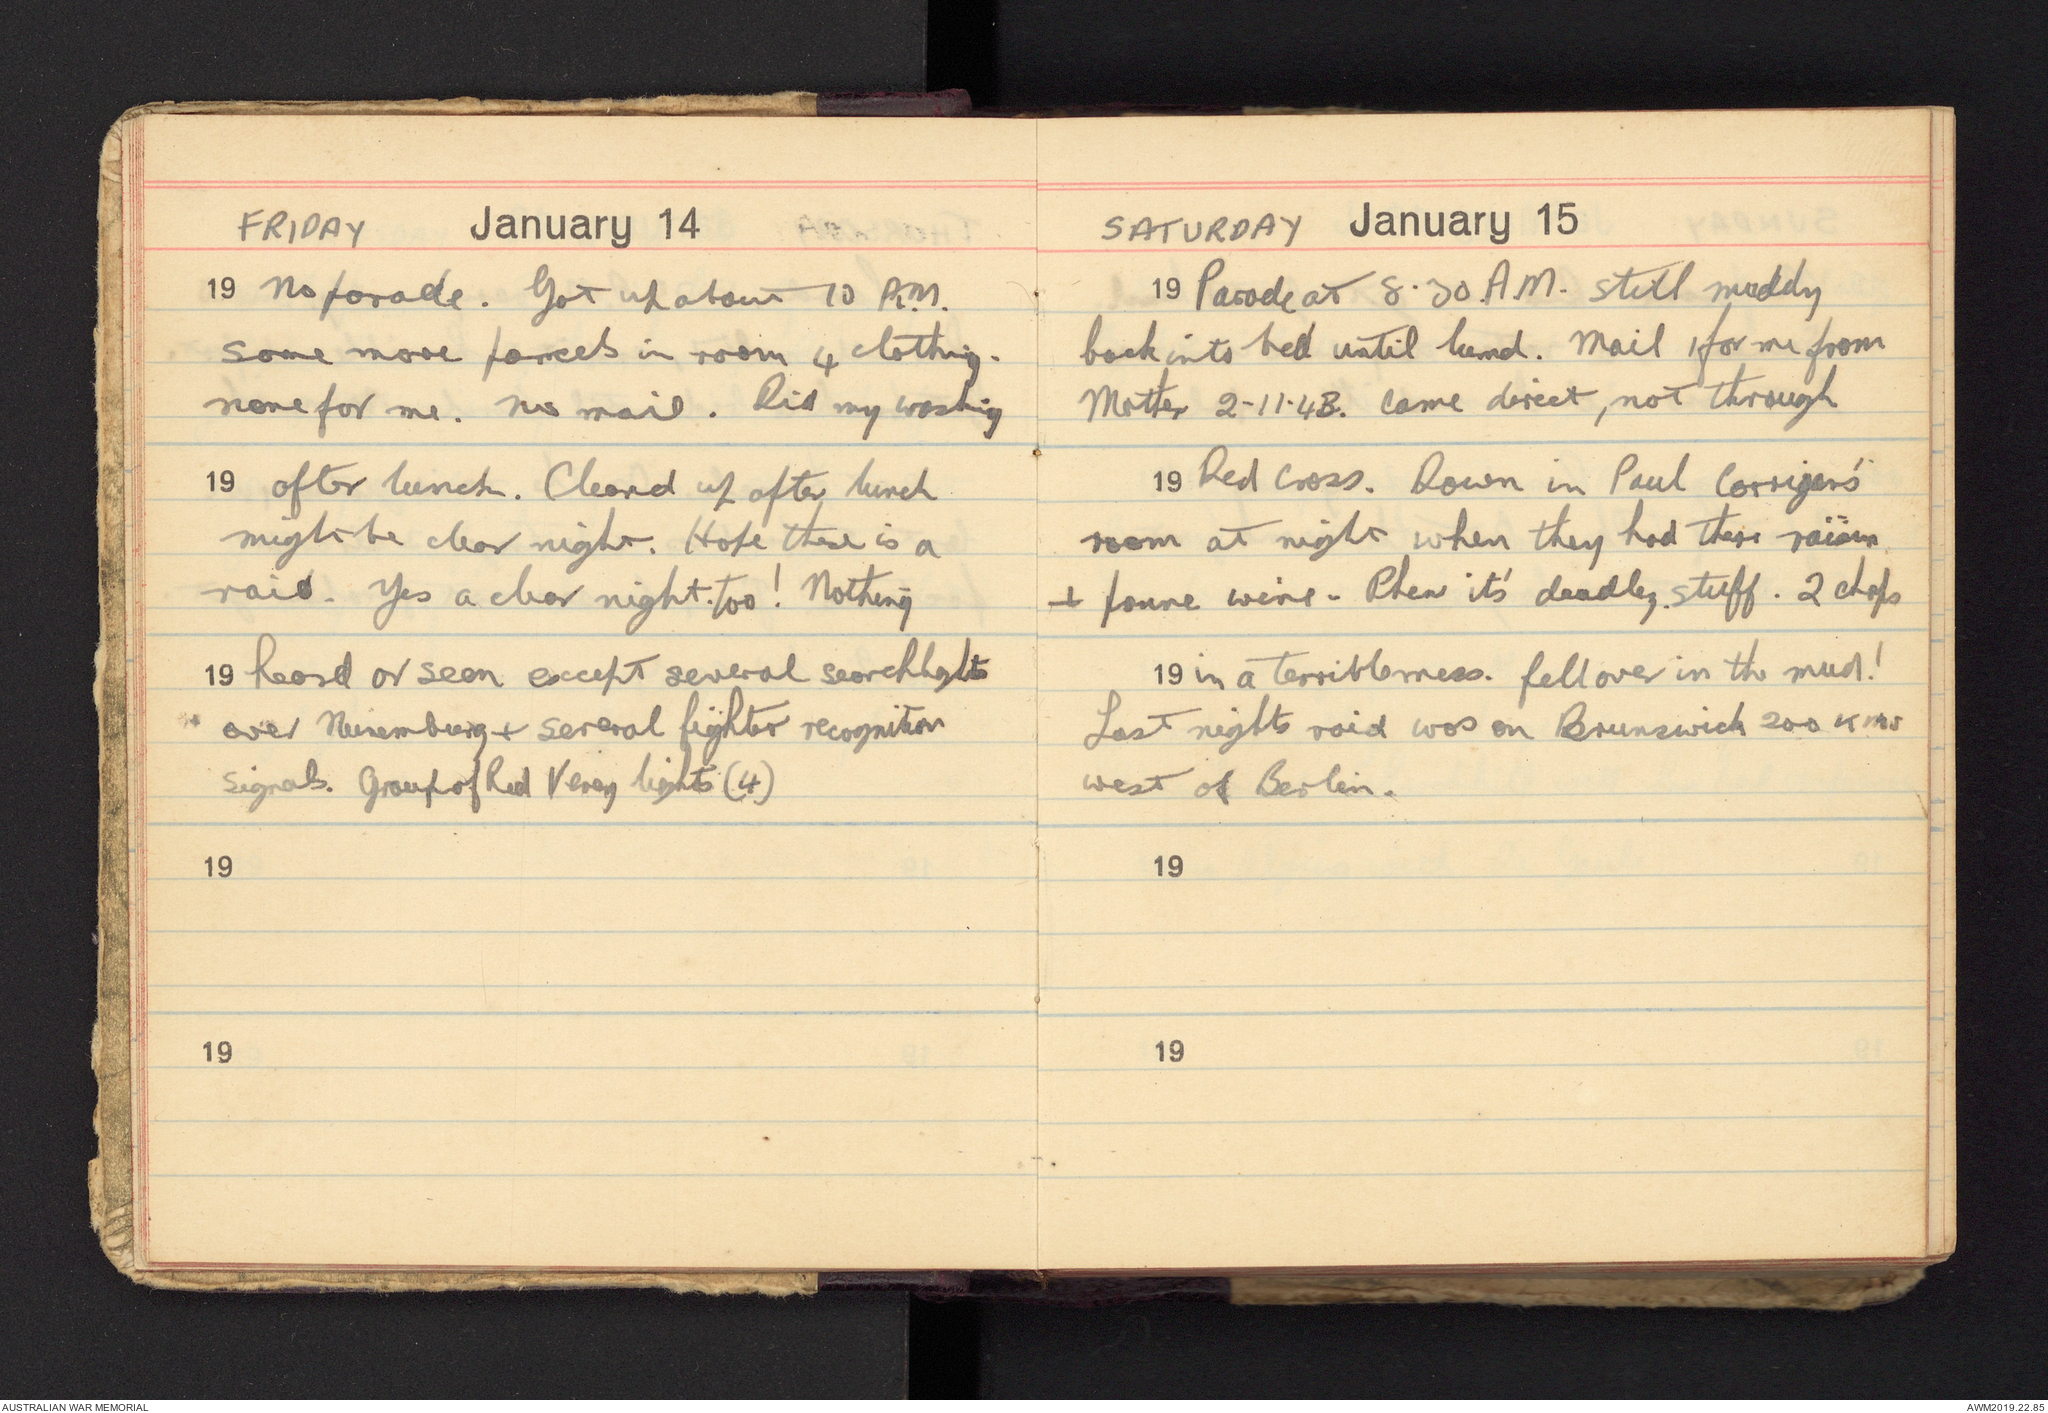 FRIDAY January 14
19 No parade. Got up about 10 A.M.
some more parcels in room 4 clothing.
none for me. No mail. Did my washing
19 after lunch. Cleard up after lunch
might be clear night. Hope there is a
raid. Yes a clear night. too! Nothing
19 heard or seen except several searchlights
over Nuremburg + several fighter recognition
signals. Group of Red Verey lights (4)
19
19
SATURDAY January 15
19 Parade at 8.30 A.M. still muddy
back into bed until lunch. Mail 1 for me from
Mother 2-11-43. Came direct, not through
19 Red Cross. Down in Paul Corrigan's
room at night when they had there raisin
+ prune wine. Phew it's deadley stuff. 2 chaps
19 in a terrible mess. fell over in the mud!
Last nights raid was on Brunswick 200 Kms
west of Berlin.
19
19
AUSTRALIAN WAR MEMORIAL
AWM2019.22.85